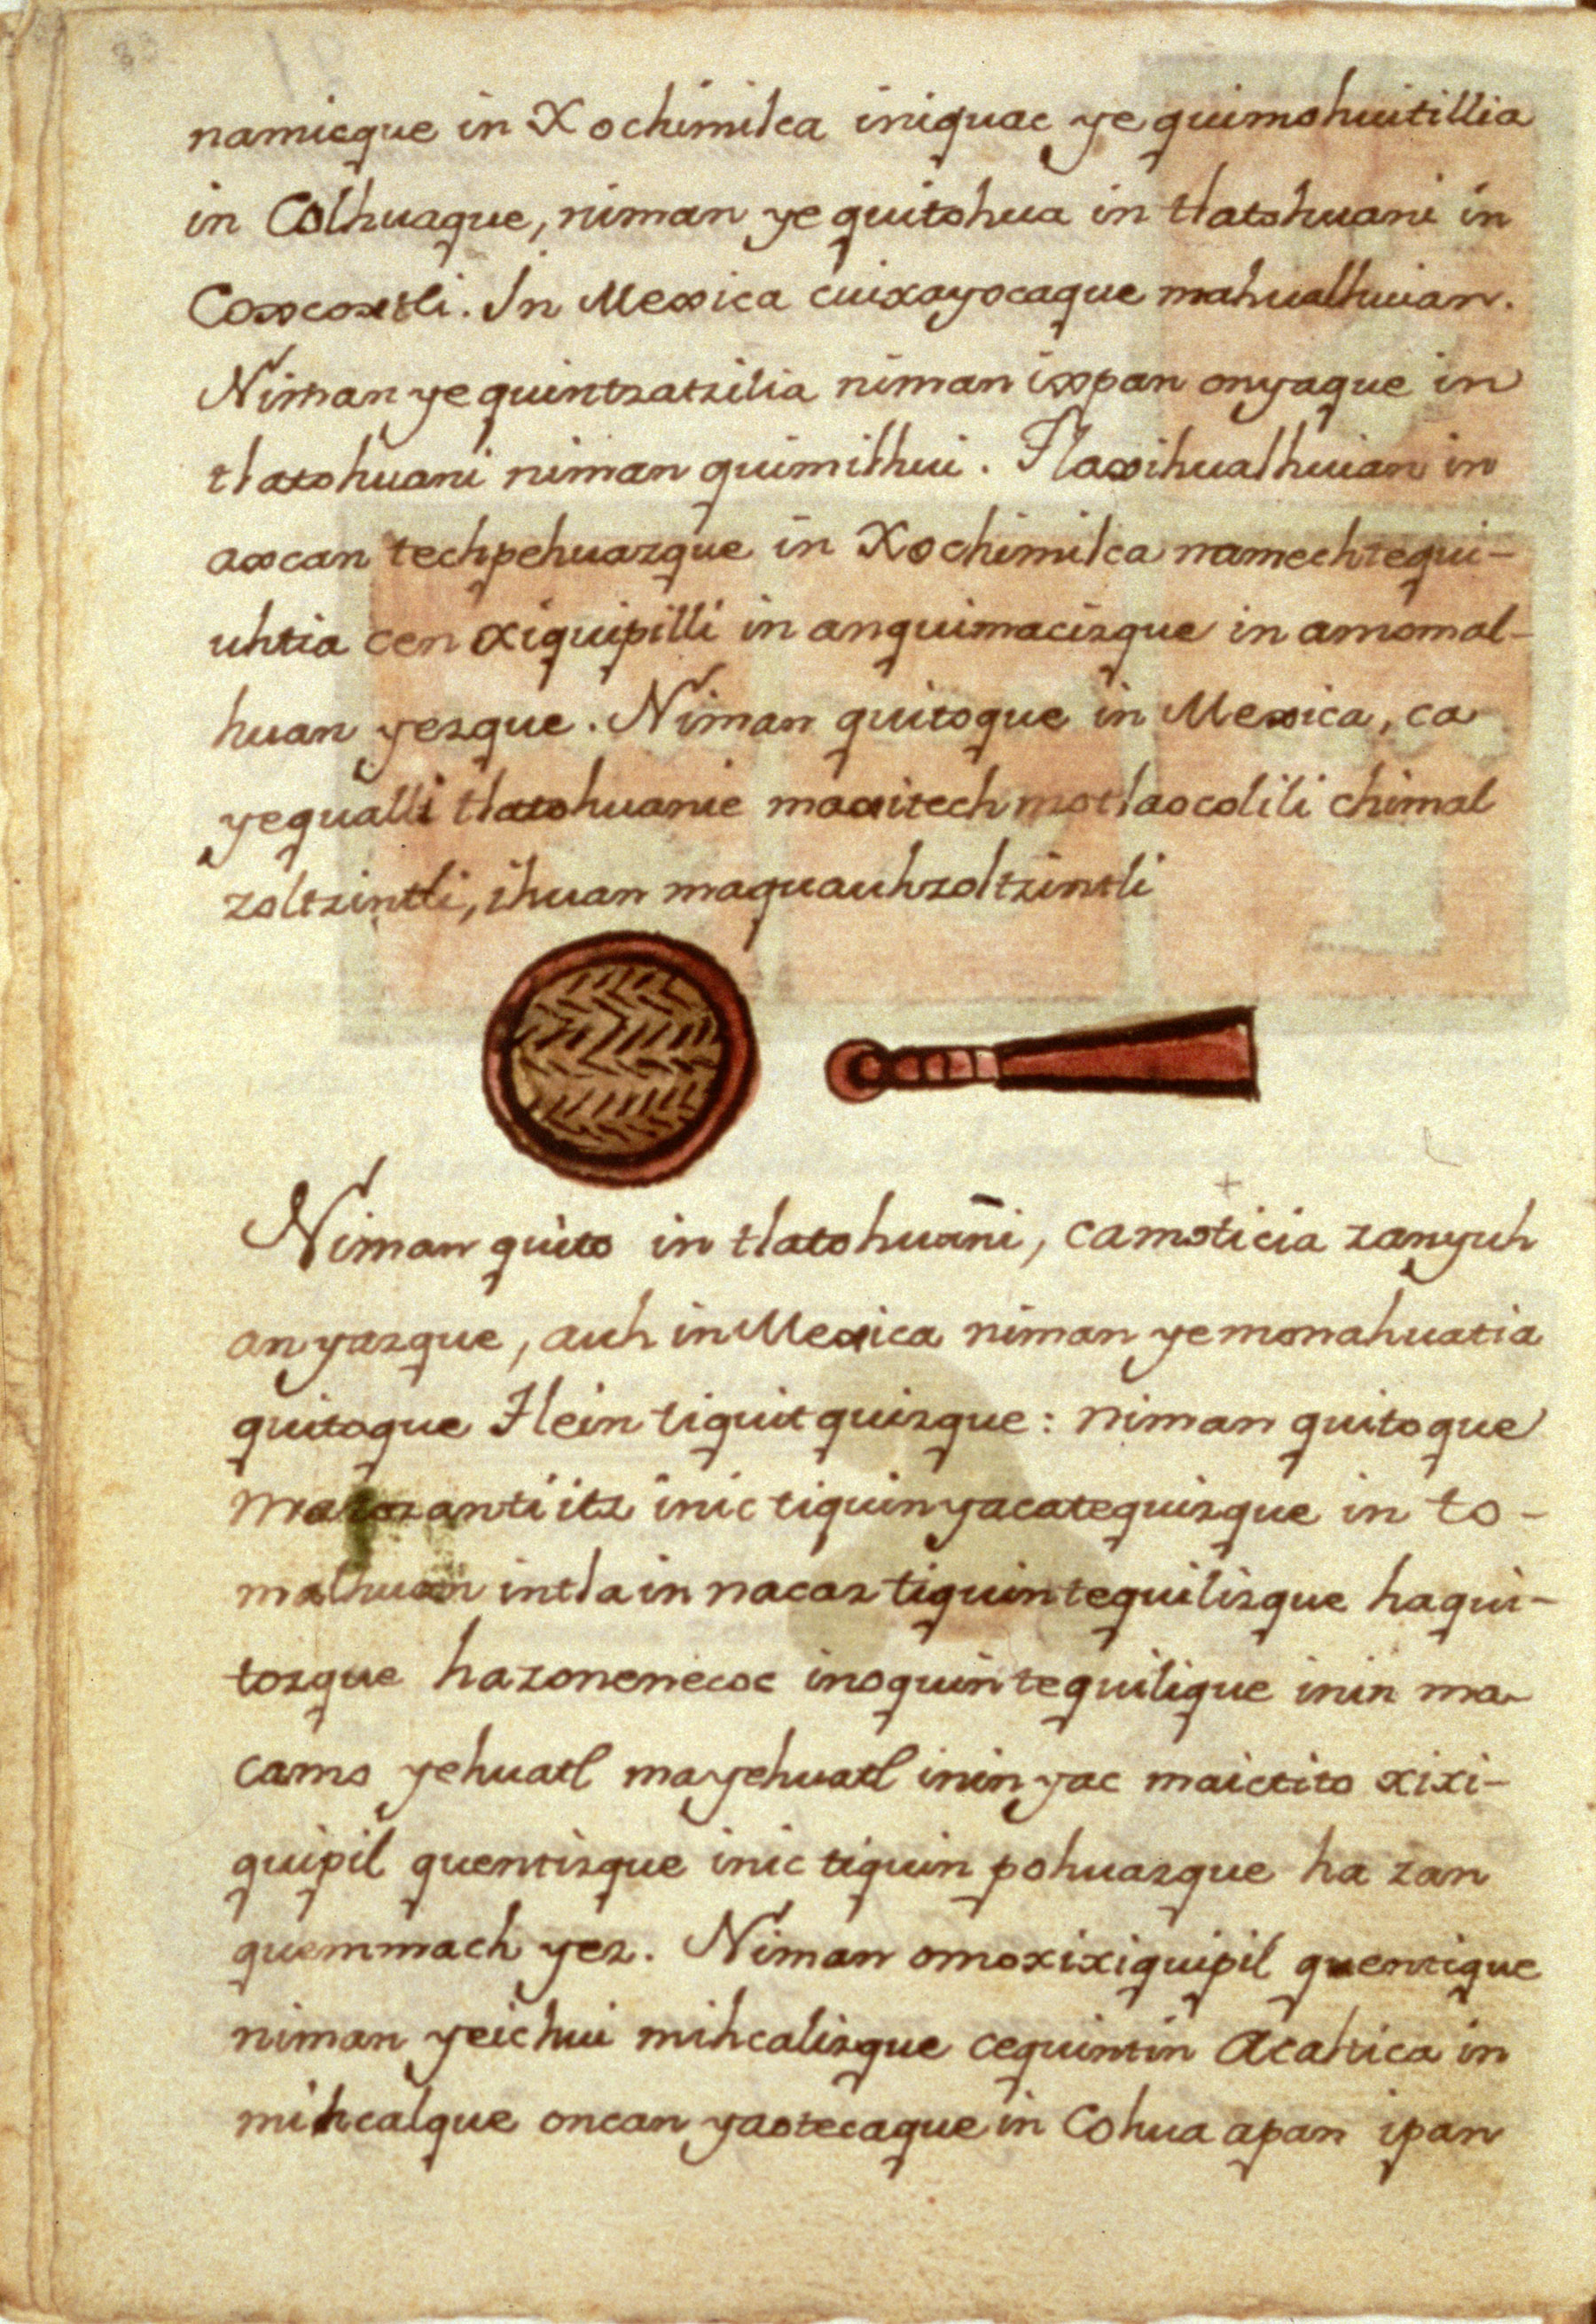 namicque in Xochimilca iniquac ye quimohuitillia
in Colhuaque, niman ye quitohua in tlatohuani in
Coxcoxtli. In Mexica cuixayocaque mahualhuian.
Niman ye quintzatzilia niman ixpan onyaque in
tlatohuani niman quimilhui. Tlaxihualhuian in
axcan techpehuazque in Xochimilca namechtequi-
uhtia cen xiquipilli in anquimacizque in amomal-
huan yezque. Niman quitoque in Mexica, ca
yequalli tlatohuanie maxitech motlaocolili chimal
zoltzintli, ihuan maquauhzoltzintli
Niman quito in tlatohuāni, camoticia zanyuh
anyazque, auh in Mexica niman ye monahuatia
quitoque Tlein tiquitquizque: niman quitoque
ma zanti itz inic tiquinyacatequizque in to-
malhuan intla in nacaz tiquintequilizque haqui-
tozque hazonenecoc inoquintequilique inin ma-
camo yehuatl mayehuatl ininyac maictito xixi-
quipil quentizque inic tiquin pohuazque ha zan
quemmach yez. Niman omoxixiquipil quentique
niman yeichui mihcalizque cequintin Acaltica in
mihcalque oncan yaotecaque in Cohua apan ipan